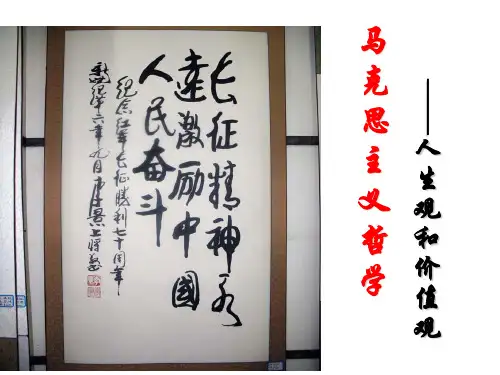 马克思主义哲学
——人生观和价值观
长征精神永
遠激励中國
人民奋斗
纪念红军长征胜利七十周年
新世纪第六年九月